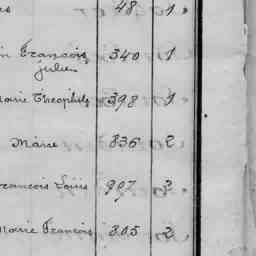 es 48 1
in François 340 1
julien
Marie Théophile 398 1
Marie 836 2
François Louis 907 3
Marie François 805 2